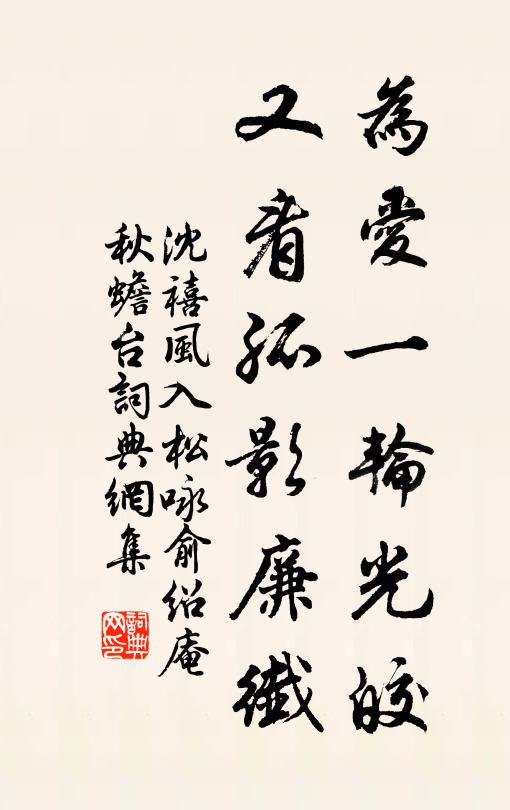 為愛一輪光皎
又看孤影廉纖
沈禧風入松咏俞紹庵
秋蟾台詞典網集
詞典网印